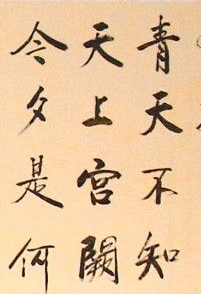 青天不知
天上宫闕
今夕是何